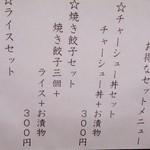 お得なセットメニュー
☆チャーシュー丼セット
チャーシュー丼+お漬物
300円
☆焼き餃子セット
焼き餃子三個+
ライス+お漬物
300円
☆ライスセット